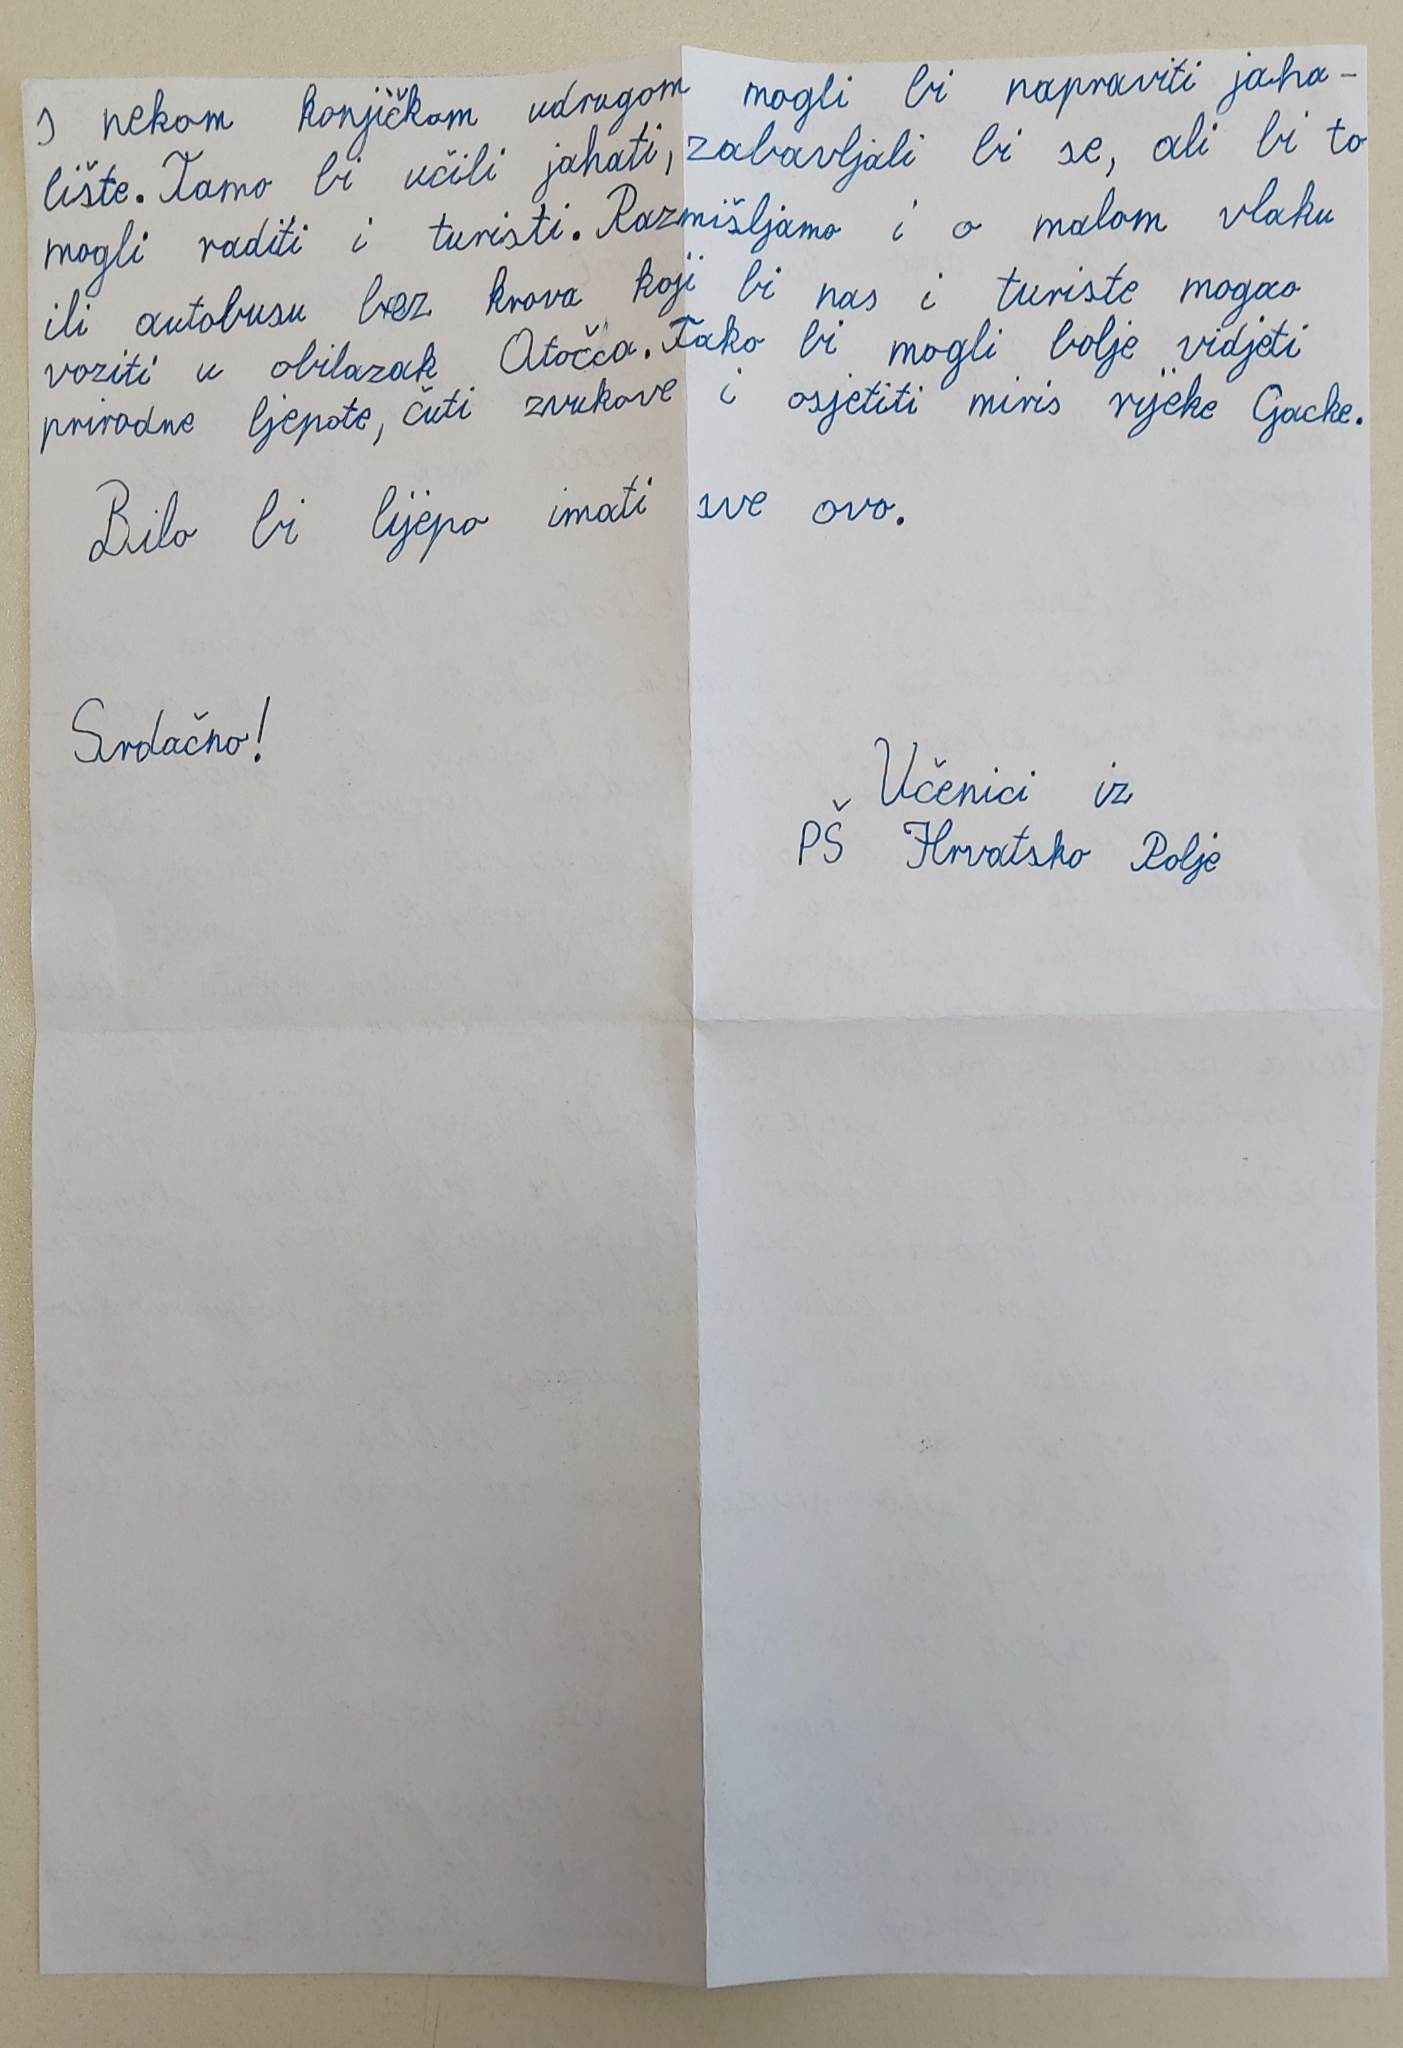 s nekom konjičkom udrugom mogli bi napraviti jaha-
lište. Tamo bi učili jahati, zabavljali bi se, ali bi to
mogli raditi i turisti. Razmišljamo i o malom vlaku
ili autobusu bez krova koji bi nas i turiste mogao
voziti u obilazak Otočca. Tako bi mogli bolje vidjeti
prirodne ljepote, čuti zvukove i osjetiti miris rijeke Gacke.
Bilo bi lijepo imati sve ovo.
Srdačno!
Učenici iz
PŠ Hrvatsko Polje